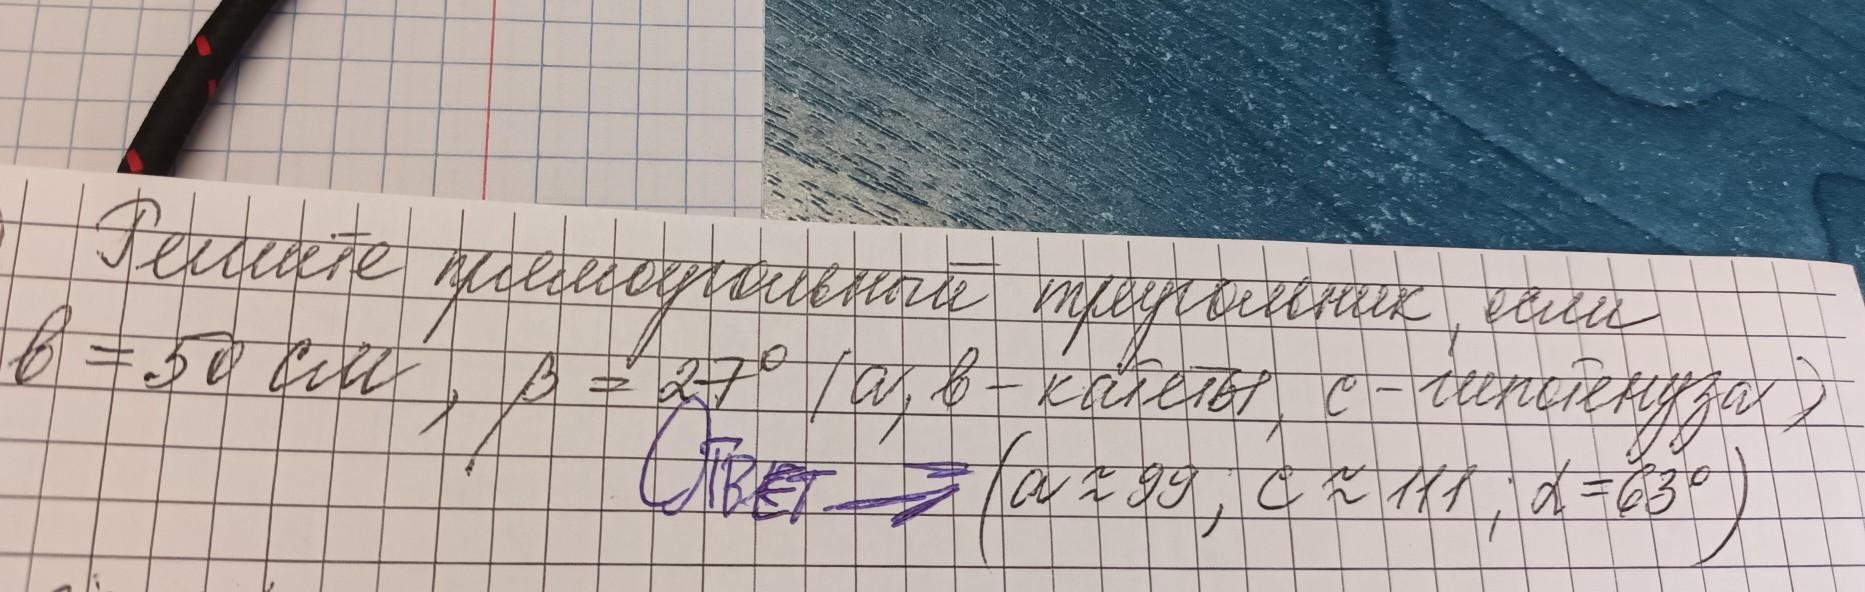 Решите прямоугольный треугольник, если
в = 50 см, β = 27° (а, в - катеты, с - гипотенуза)
Ответ → (а ≈ 99; с ≈ 111; α = 63°)